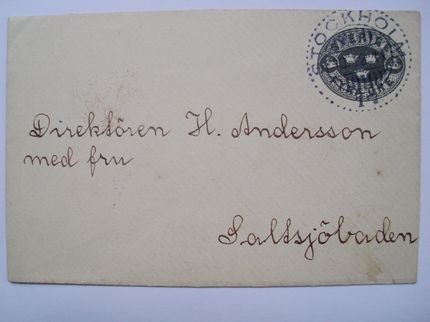 STOCKHOLM
SVERIGE
Direktören H. Andersson
med fru
Saltsjöbaden